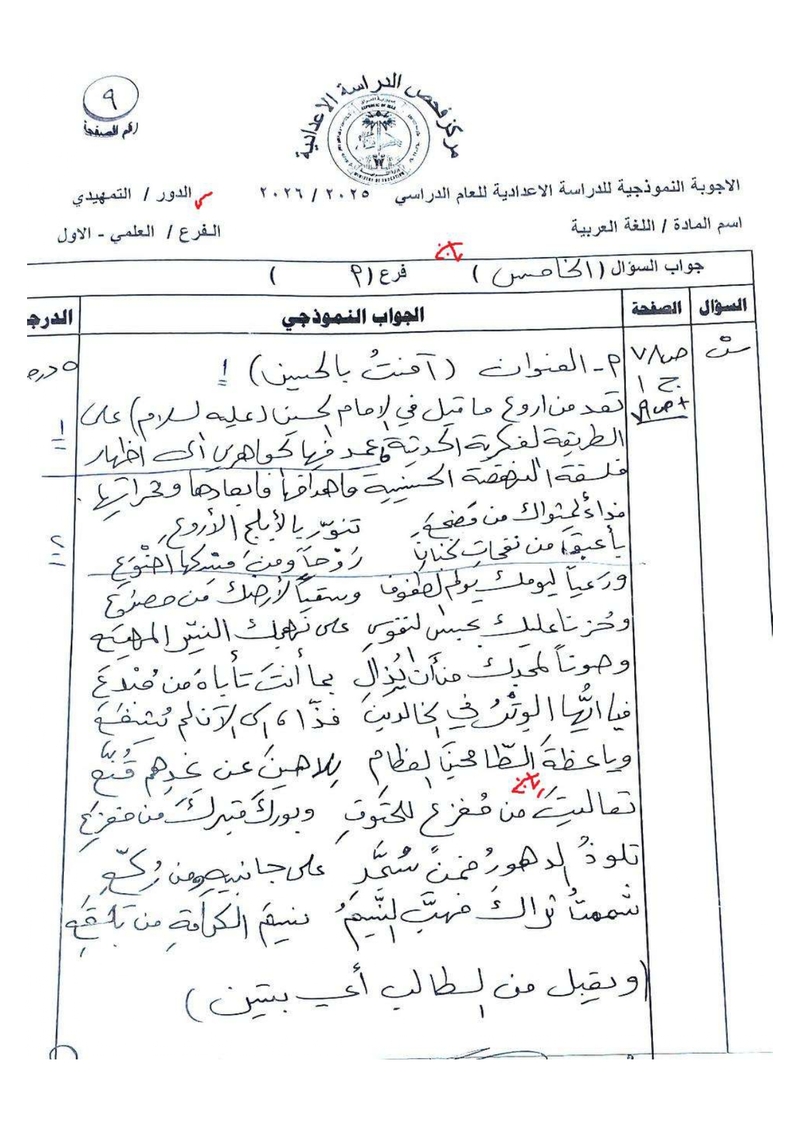 مركز فحص الدراسة الاعدادية
٩
رقم الصفحة
الاجوبة النموذجية للدراسة الاعدادية للعام الدراسي ٢٠٢٥ / ٢٠٢٦ الدور / التمهيدي
اسم المادة / اللغة العربية الفرع / العلمي - الاول
جواب السؤال ( الخامس ) فرع ( ٩ )
السؤال الصفحة الجواب النموذجي الدرجة
س٥ ص٧٨ م- العنوان ( آمنتُ بالحسين ) ٥ درجة
ج ١ تعد من اروع ما قيل في الإمام الحسين (عليه السلام) على
الطريقة الفكرية الحديثة عمد فيها الجواهري الى اظهار
فلسفة النهضة الحسينية واهدافها وابعادها
فداءً لمثواك من مضجعِ تنوّر بالأبلج الأروعِ
بأعبق من نفحات الجنان رَوْحاً ومن مسكها أضوعِ
ورعياً ليومك يوم الطفوف وسقياً لأرضك من مصرعِ
وحزنا عليك بحبس النفوس على نهجك النيّر المهيعِ
وصوناً لمجدك من أن يُذال بما أنتَ تأباه من مُبدعِ
فيا ايُّها الوِترُ في الخالدينَ فذّاً، الى الآن لم يُشفعِ
ويا عظةَ الطّامحينَ العظام للاهينَ عن غدِهم قُنّعِ
تعاليتَ من مُفزعٍ للحتوفِ وبوركَ قبرك من مفزعِ
تلوذُ الدهورُ فمنْ سُجَّدٍ على جانبيهِ ومن رُكّعِ
شممتُ ثراك فهبَّ النّسيمُ نسيمُ الكرامةِ من بلقعِ
( ويقبل من الطالب أي بيتين )